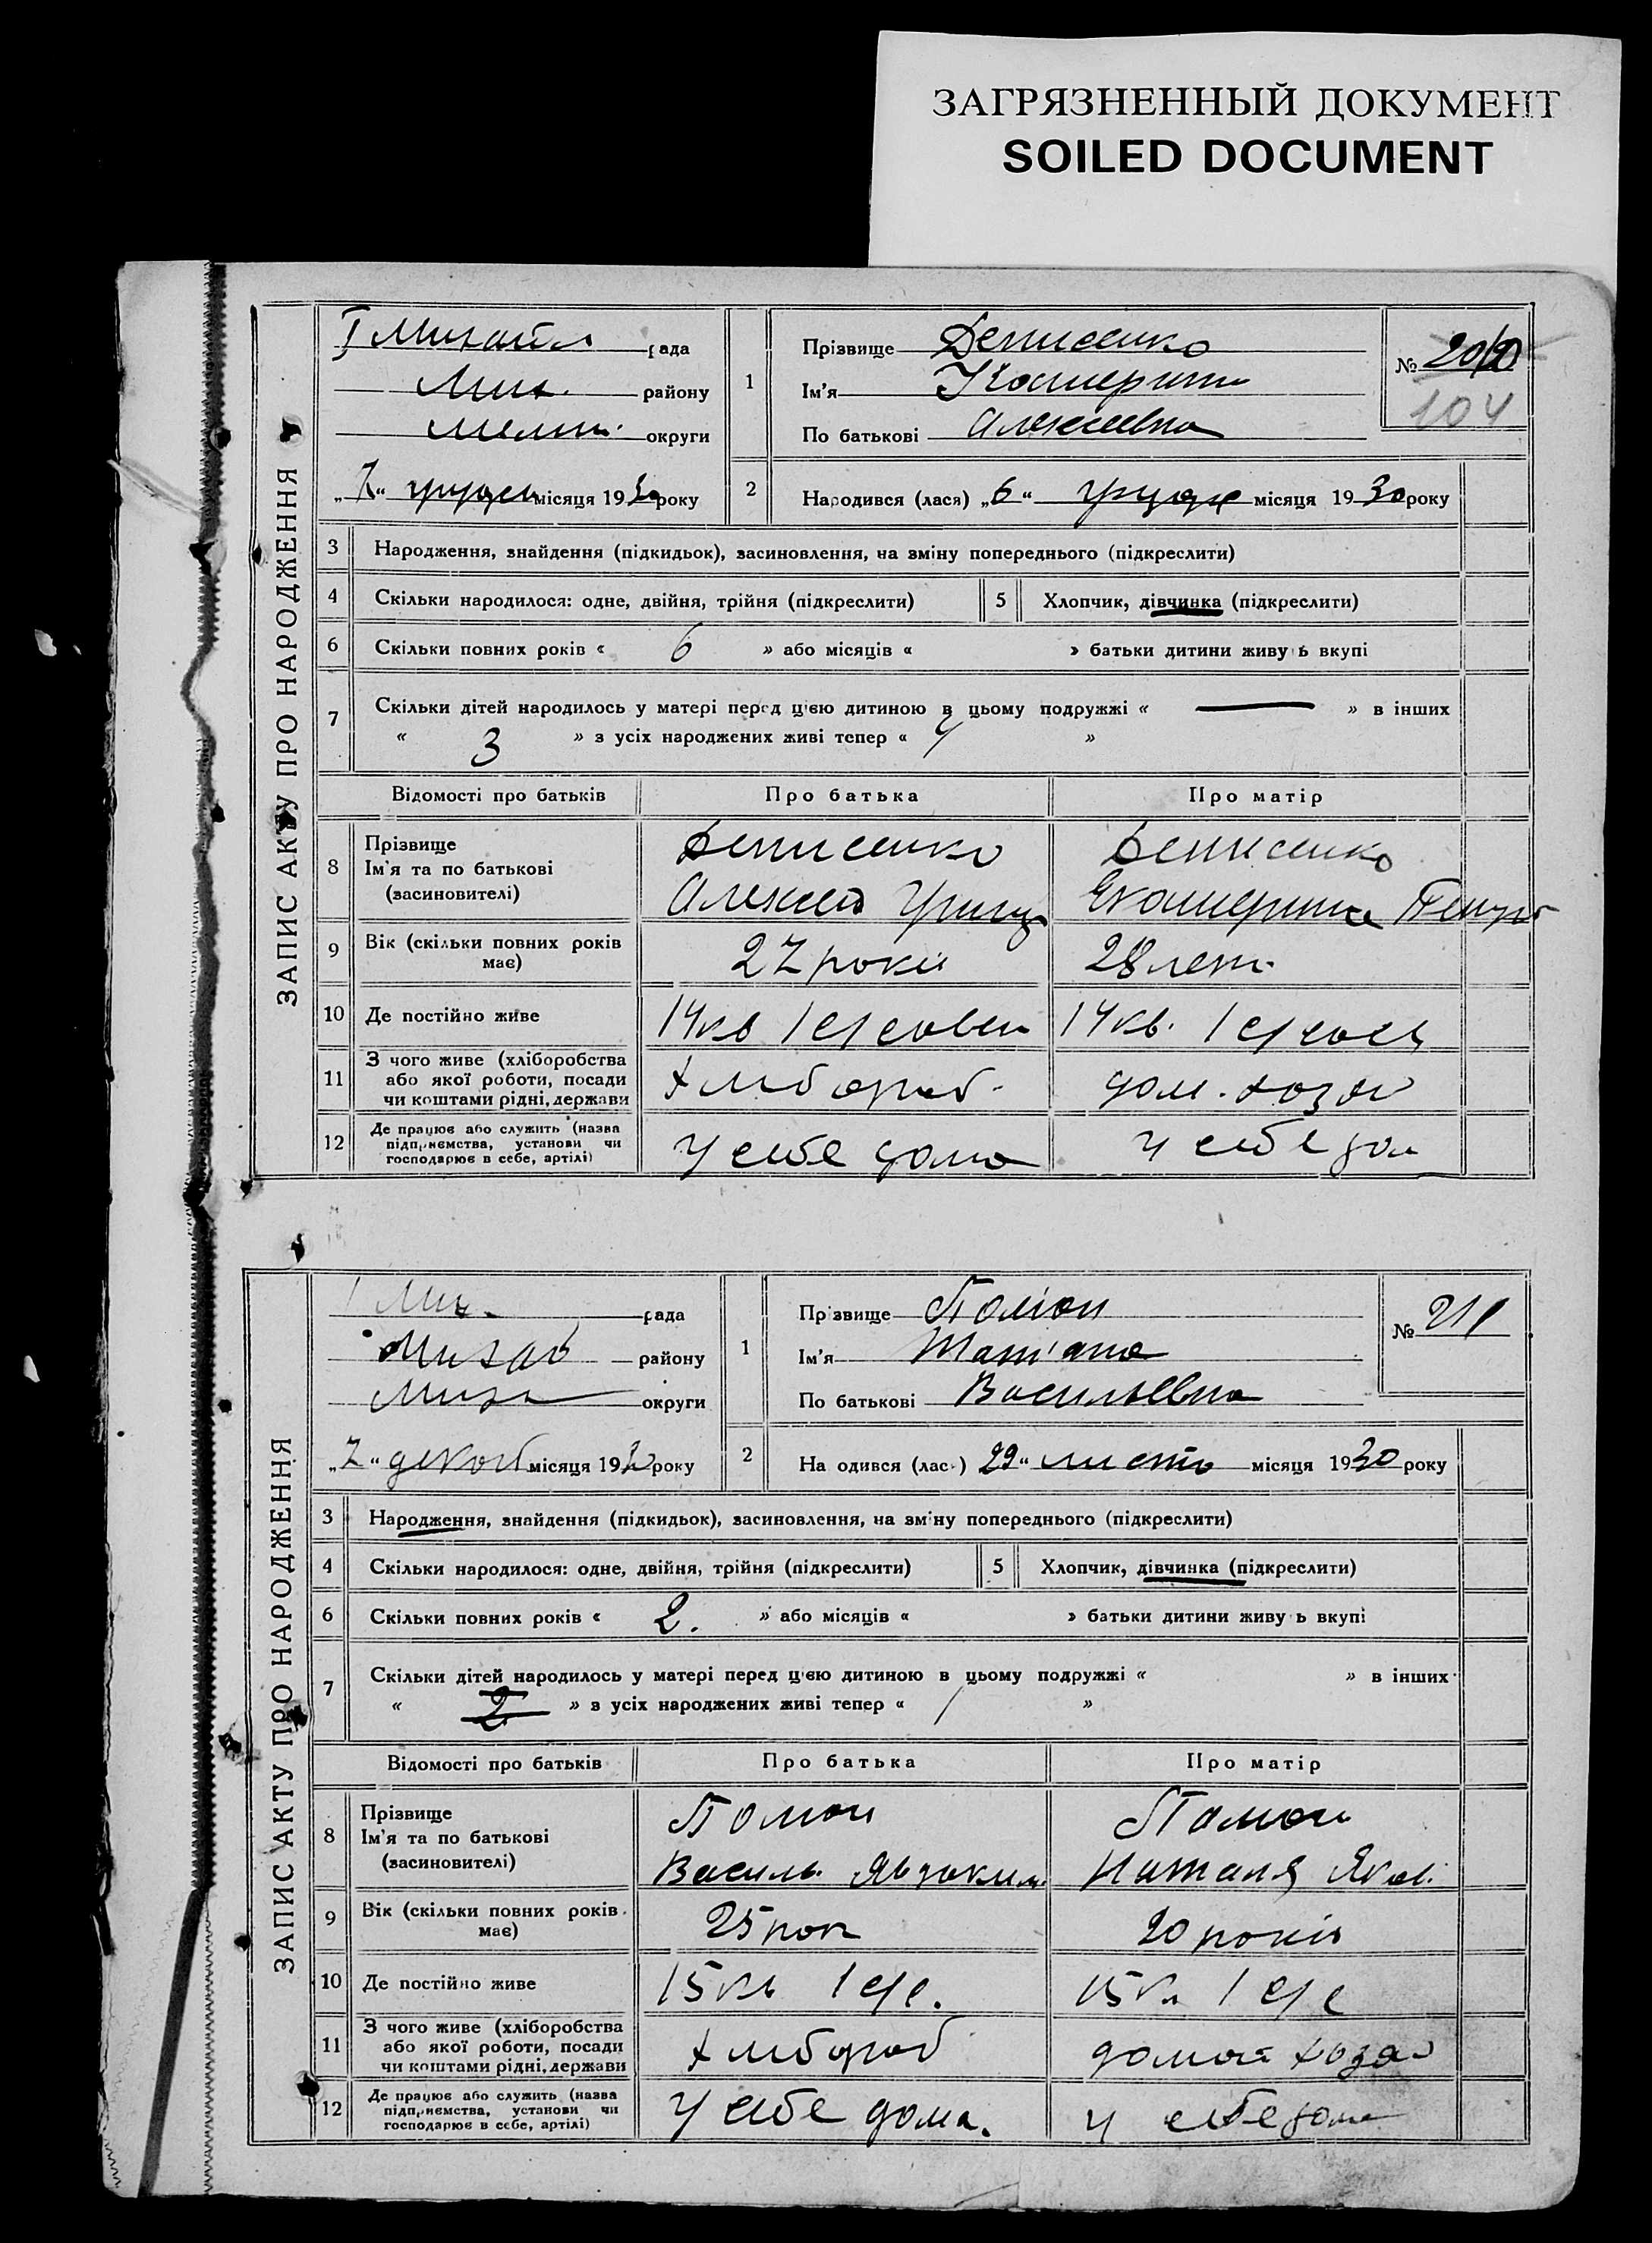 ЗАГРЯЗНЕННЫЙ ДОКУМЕНТ
SOILED DOCUMENT
ЗАПИС АКТУ ПРО НАРОДЖЕННЯ
I Михайл рада
Мих. району
Мелит. округи
„7“ грудня місяця 1930 року
1
Прізвище Денисенко
Ім'я Катерина
По батькові Алексеевна
№
104
2 Народився (лася) „6“ грудня місяця 1930 року
3 Народження, знайдення (підкидьок), засиновлення, на зміну попереднього (підкреслити)
4 Скільки народилося: одне, двійня, трійня (підкреслити) 5 Хлопчик, дівчинка (підкреслити)
6 Скільки повних років « 6 » або місяців « » батьки дитини живуть вкупі
7 Скільки дітей народилось у матері перед цією дитиною в цьому подружжі « — » в інших
« 3 » з усіх народжених живі тепер « 4 »
Відомості про батьків Про батька Про матір
8 Прізвище Ім'я та по батькові (засновителі)
Денисенко Денисенко
Алексей Григор Екатерина
9 Вік (скільки повних років має) 27 років 28 лет.
10 Де постійно живе 14 кв 1 с/совет 14 кв. 1 с/сов
11 З чого живе (хліборобства або якої роботи, посади чи коштами рідні, держави Хлібороб. дом. хозяй
12 Де працює або служить (назва підприємства, установи чи господарює в себе, артілі) У себе дома у себе дом
ЗАПИС АКТУ ПРО НАРОДЖЕННЯ
I Мих. рада
Михай району
округи
„7“ декаб місяця 1930 року
1
Прізвище
Ім'я Татіана
По батькові Васильевна
№ 211
2 Народився (лася) 29“ листо місяця 1930 року
3 Народження, знайдення (підкидьок), засиновлення, на зміну попереднього (підкреслити)
4 Скільки народилося: одне, двійня, трійня (підкреслити) 5 Хлопчик, дівчинка (підкреслити)
6 Скільки повних років « 2. » або місяців « » батьки дитини живуть вкупі
7 Скільки дітей народилось у матері перед цією дитиною в цьому подружжі « » в інших
« 2 » з усіх народжених живі тепер « 1 »
Відомості про батьків Про батька Про матір
8 Прізвище Ім'я та по батькові (засиновителі)
Василь Явдоким. Наталя Яков.
9 Вік (скільки повних років має) 25 рок 20 років
10 Де постійно живе 15 кв 1 с/с. 15 кв 1 с/с
11 З чого живе (хліборобства або якої роботи, посади чи коштами рідні, держави Хлібороб домаш хозяй
12 Де працює або служить (назва підприємства, установи чи господарює в себе, артілі) У себе дома. у себе дома